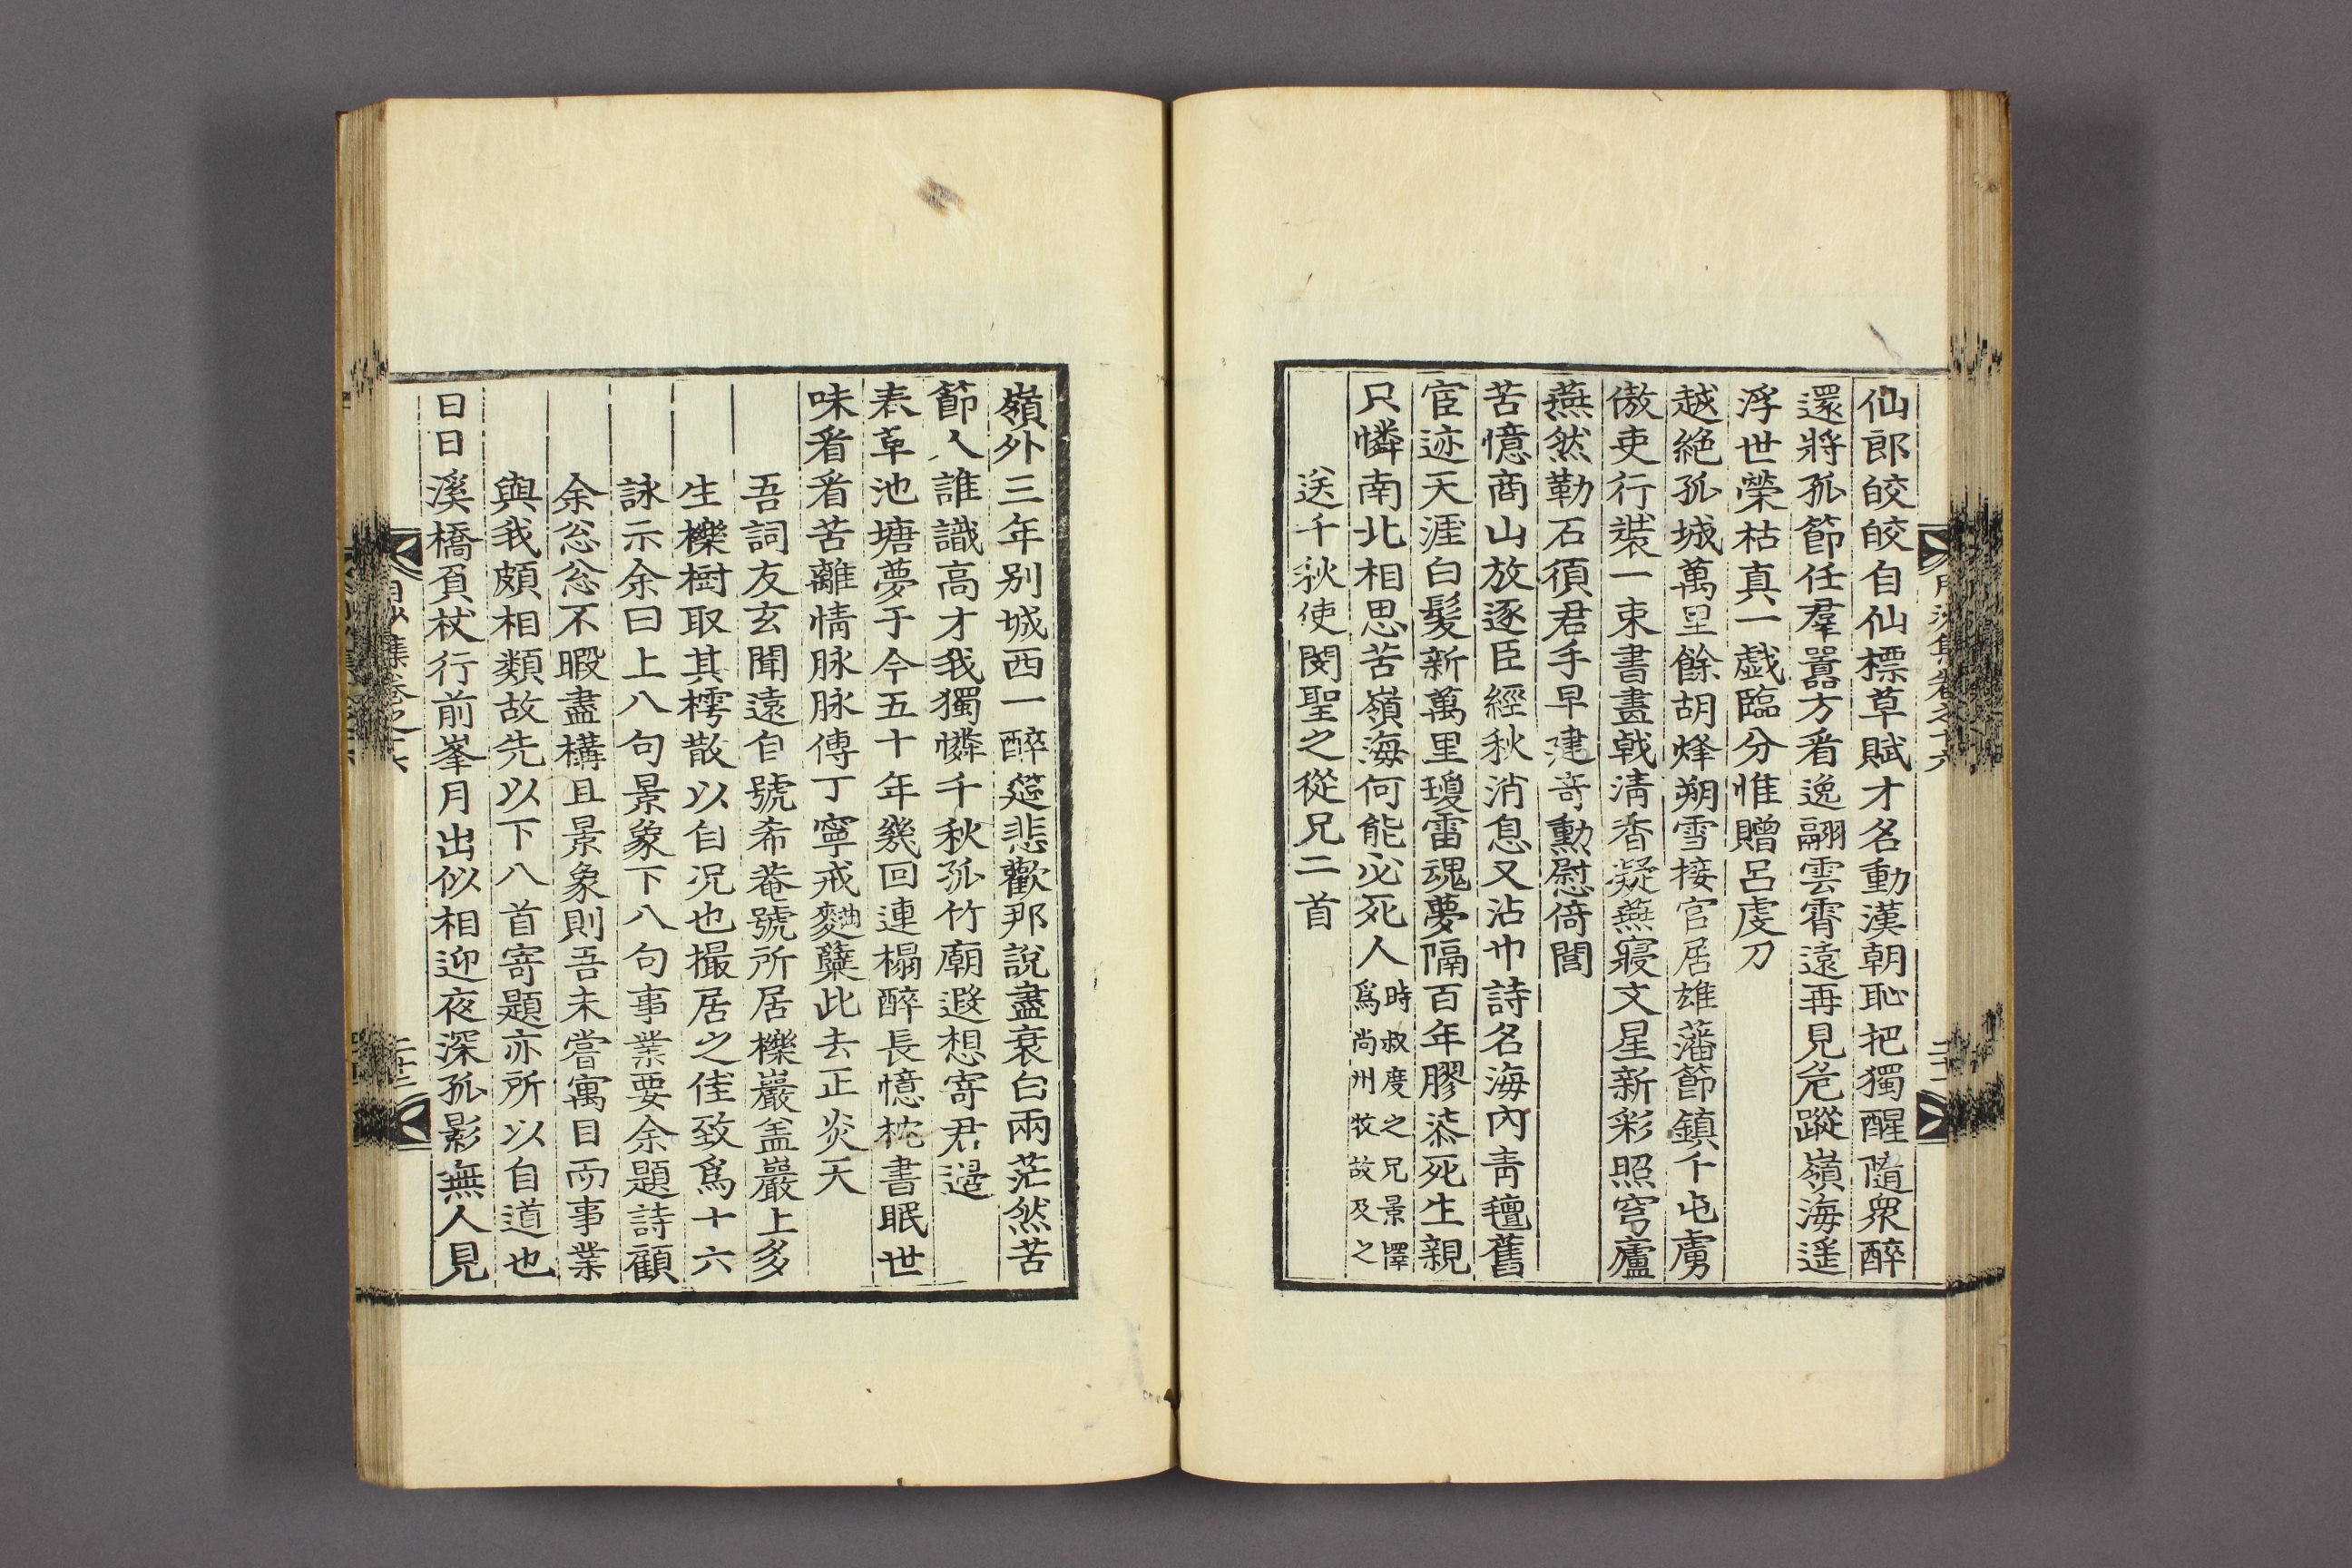 仙郎皎皎自仙標草賦才名動漢朝恥把獨醒隨衆醉
還將孤節任羣囂方看逸翮雲霄遠再見危蹤嶺海遥
浮世榮枯真一戱臨分惟贈呂虔刀
越絶孤城萬里餘胡烽朔雪接官居雄藩節鎮千屯虜
傲吏行裝一束書畫戟淸香凝燕寢文星新彩照穹廬
燕然勒石須君手早建竒勳慰倚閭
苦憶商山放逐臣經秋消息又沾巾詩名海內靑氊舊
宦迹天涯白髮新萬里瓊雷魂夢隔百年膠漆死生親
只憐南北相思苦嶺海何能必死人時叔度之兄景曎
爲尚州牧故及之
送千秋使閔聖之從兄二首
嶺外三年别城西一醉筵悲歡那說盡衰白兩茫然苦
節人誰識高才我獨憐千秋孤竹廟遐想寄君邉
春草池塘夢于今五十年幾回連榻醉長憶枕書眠世
味看看苦離情脉脉傳丁寧戒麯蘖此去正炎天
吾詞友玄聞遠自號希菴號所居櫟巖盖巖上多
生櫟樹取其樗散以自况也撮居之佳致爲十六
詠示余曰上八句景象下八句事業要余題詩顧
余忩忩不暇盡構且景象則吾未嘗寓目而事業
與我頗相類故先以下八首寄題亦所以自道也
日日溪橋負杖行前峯月出似相迎夜深孤影無人見
月沙集卷之十六